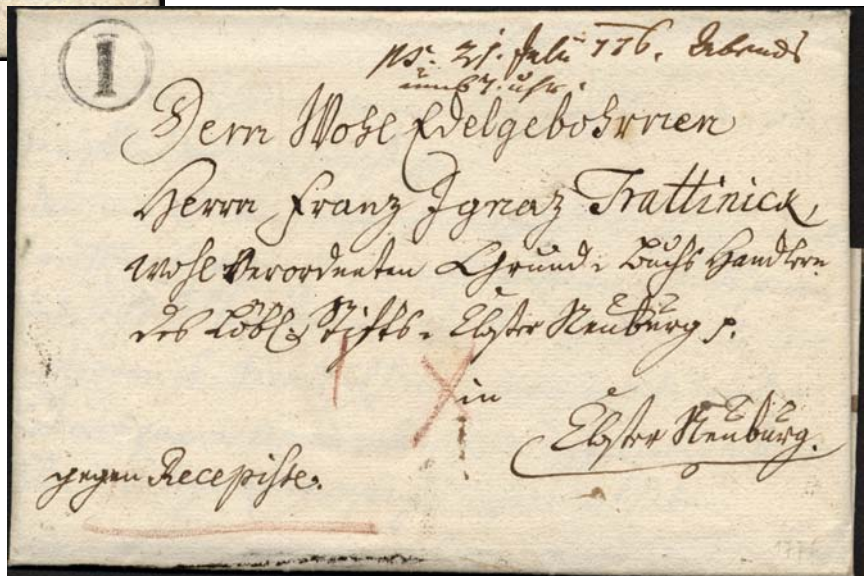 I
ps: 21. Julii 776. Abends
umb 7. uhr.
Dem Wohl Edelgebohrnen
Herrn Franz Ignaz Trattinick,
wohl Verordneten Grund-Buchs Handlern
des Löbl: Stifts Closter Neuburg p.
in
Closter Neuburg.
gegen Recepisse.